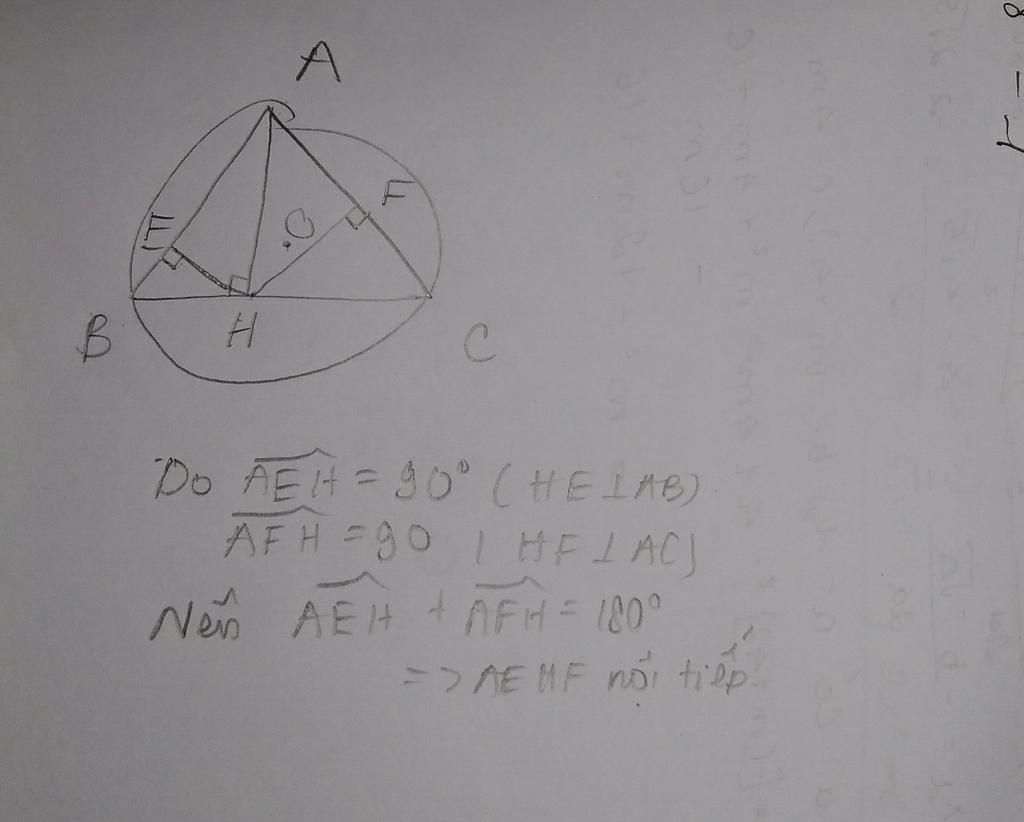 A
E
F
O
B
H
C
Do AEH = 90° (HE⊥AB)
AFH = 90 (HF⊥AC)
Nên AEH + AFH = 180°
=> AEHF nội tiếp